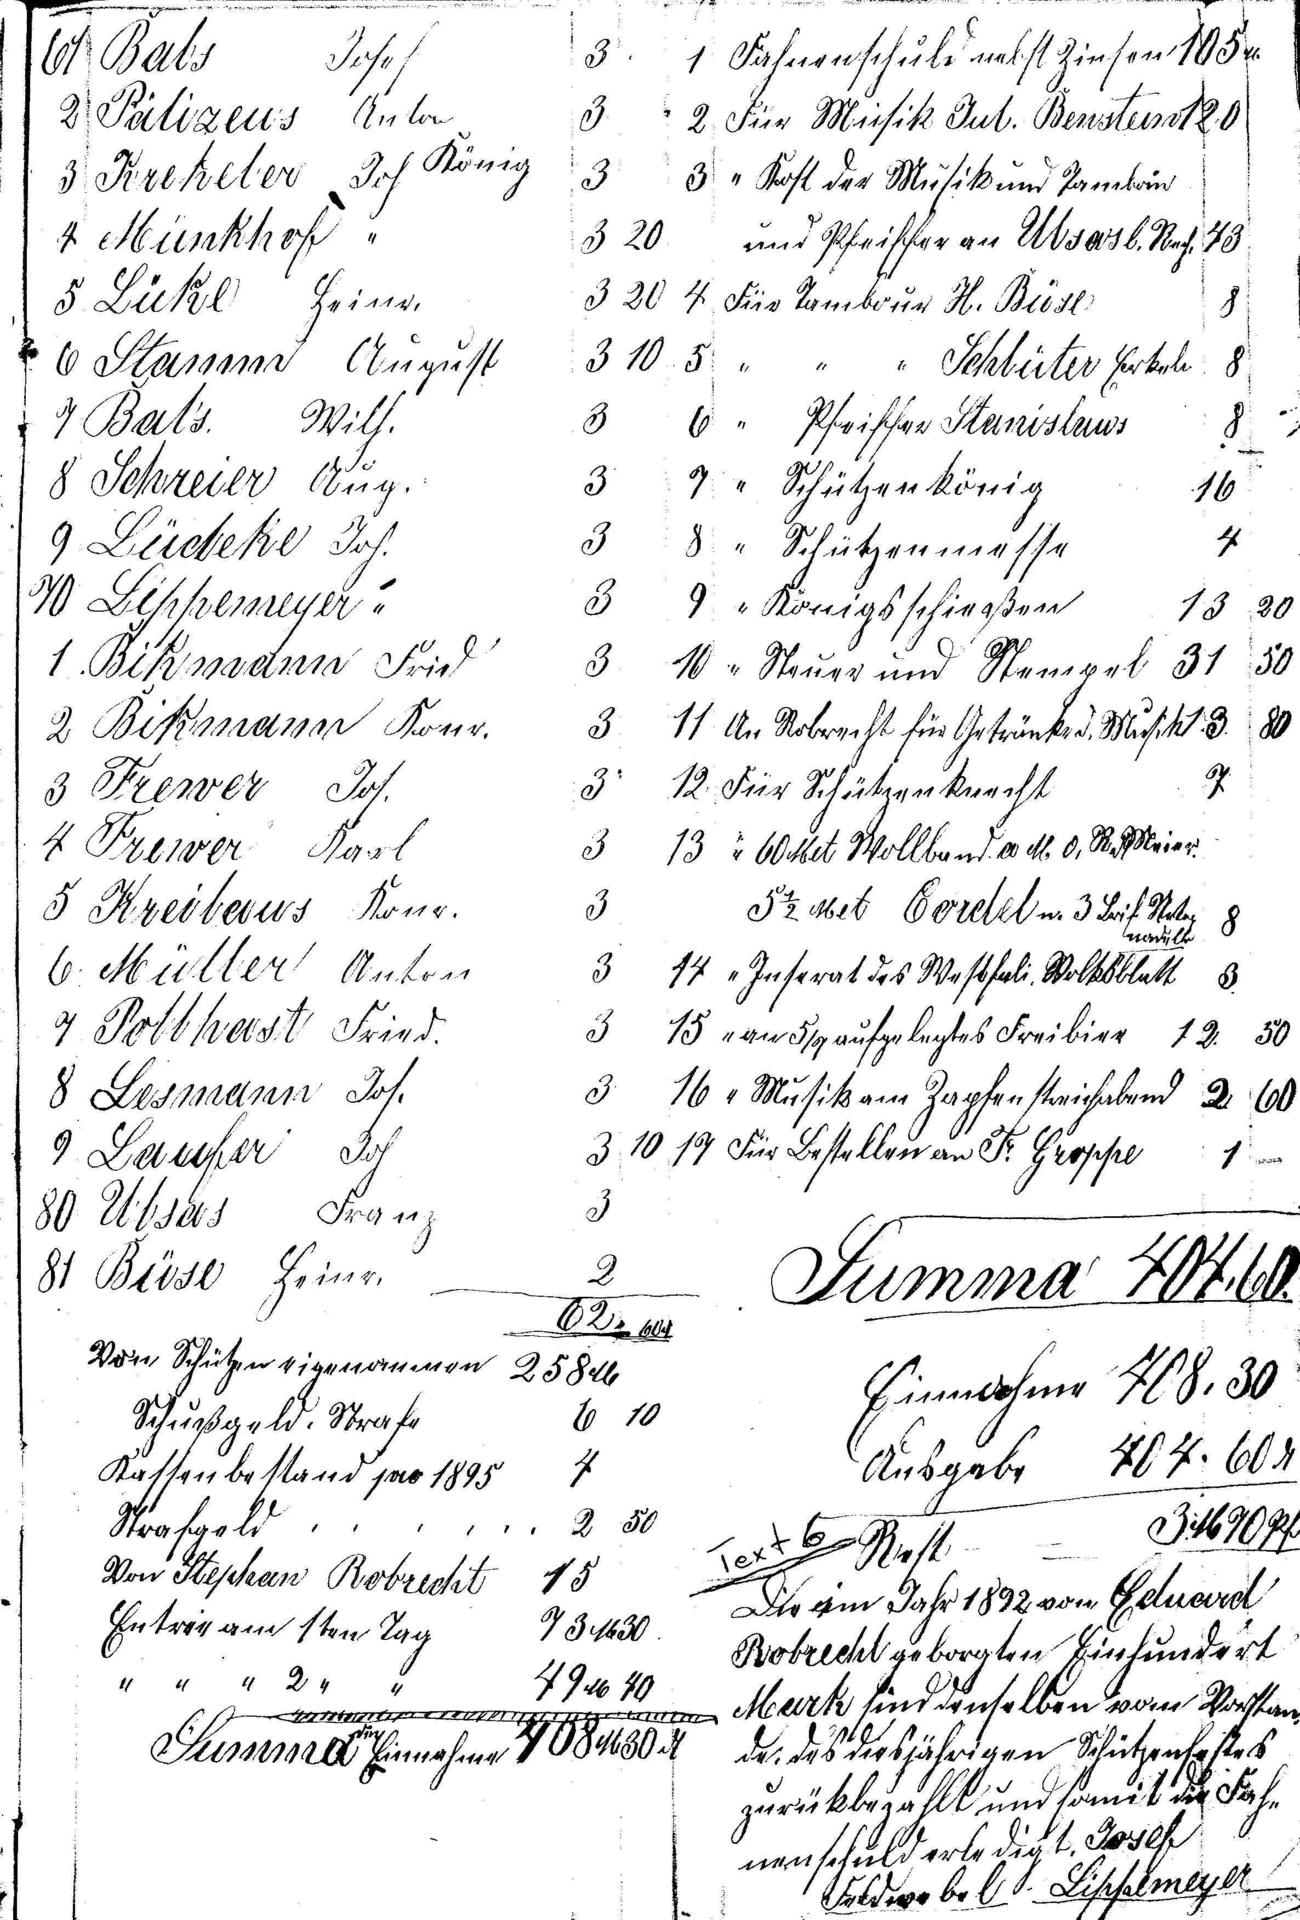 61 Bals Josef 3
2 Pälizeus Anton 3
3 Krekeler Joh König 3
4 Münkhof " 3 20
5 Lüke Heinr. 3 20
6 Stamm August 3 10
7 Bals. Wilh. 3
8 Schreier Aug. 3
9 Lüdeke Joh. 3
70 Lippemeyer " 3
1 Bikmann Fried 3
2 Bikmann Konr. 3
3 Frewer Jos. 3
4 Frewer Karl 3
5 Kreilaus Konr. 3
6 Müller Anton 3
7 Potthast Fried. 3
8 Lesmann Jos. 3
9 Laufer Joh 3 10
80 Ubsas Franz 3
81 Böse Heinr. 2
62. 60
Von Schützen eigenommen 258 M
Schußgeld. Strafe 6 10
Kassenbestand pro 1895 4
Strafgeld . . . . . . 2 50
Von Stephan Robrecht 15
Entree am 1ten Tag 73 M 30
" " " 2 " " 49 M 40
Summa der Einnahme 408 M 30
1 Fahnenschuld nebst Zinsen 105
2 Für Musik Jul. Benstein 120
3 " Kost der Musik und Tambour
und Pfeiffer an Ubsas l. Rech. 43
4 Für Tambour H. Böse 8
5 " " " Schlüter Erkeln 8
6 " Pfeiffer Stanislaus 8
7 " Schützenkönig 16
8 " Schützenmesse 4
9 " Königsschießen 13 20
10 " Steuer und Stempel 31 50
11 An Robrecht für Getränke d. Musik 13. 80
12 Für Schützenknecht 7
13 " 60 Met Wollband Meier.
5 1/2 Met Cordel u. 3 Brif Steck
nadeln 8
14 " Inserat des Westfäli. Volksblatt 3
15 " an 5/4 aufgelegtes Freibier 12. 50
16 " Musik am Zapfenstreichabend 2 60
17 Für Bestellen an F. Groppe 1 —
Summa 404,60.
Einnahme 408,30
Ausgabe 404.60
Text 6
Rest — — 3 M 70 Pf
Die im Jahr 1892 von Eduard
Robrecht geborgten Einhundert
Mark sind denselben vom Vorstan-
de. des diesjährigen Schützenfestes
zurükbezahlt und somit die Fah-
nenschuld erledigt. Josef
Feldwebel. Lippemeyer